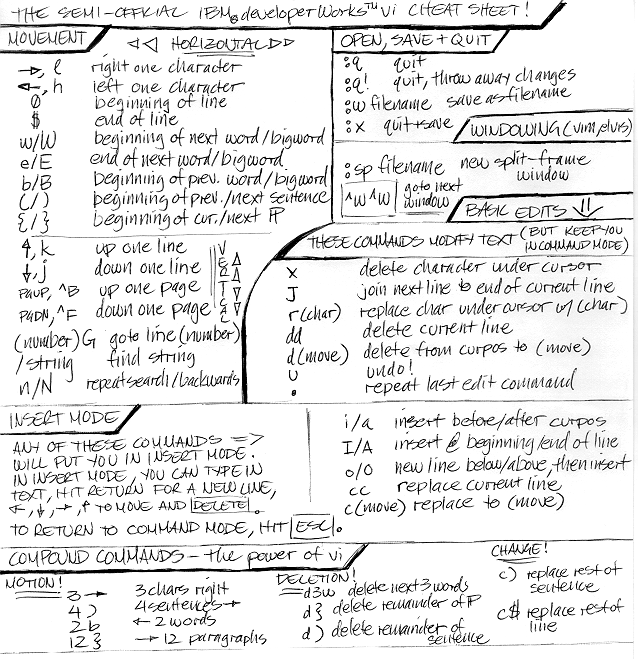 THE SEMI-OFFICIAL IBM® developerWorks™ vi CHEAT SHEET!
MOVEMENT
◁◁ HORIZONTAL ▷▷
→, l right one character
←, h left one character
0 beginning of line
$ end of line
w/W beginning of next word/bigword
e/E end of next word/bigword
b/B beginning of prev. word/bigword
(/) beginning of prev./next sentence
{/} beginning of cur./next ¶
↑, k up one line
↓, j down one line
PGUP, ^B up one page
PGDN, ^F down one page
VERTICAL
(number)G goto line (number)
/string find string
n/N repeat search/backwards
OPEN, SAVE + QUIT
:q quit
:q! quit, throw away changes
:w filename save as filename
:x quit+save
WINDOWING (vim, elvis)
:sp filename new split-frame
window
^W ^W goto next
window
BASIC EDITS ⇓
THESE COMMANDS MODIFY TEXT (BUT KEEP YOU
IN COMMAND MODE)
x delete character under cursor
J join next line to end of current line
r(char) replace char under cursor w/ (char)
dd delete current line
d(move) delete from curpos to (move)
u undo!
. repeat last edit command
INSERT MODE
ANY OF THESE COMMANDS =>
WILL PUT YOU IN INSERT MODE.
IN INSERT MODE, YOU CAN TYPE IN
TEXT, HIT RETURN FOR A NEW LINE,
←, ↓, →, ↑ TO MOVE AND DELETE.
TO RETURN TO COMMAND MODE, HIT ESC.
i/a insert before/after curpos
I/A insert @ beginning/end of line
o/O new line below/above, then insert
cc replace current line
c(move) replace to (move)
COMPOUND COMMANDS - the power of vi
MOTION!
3→ 3 chars right
4) 4 sentences →
2b ← 2 words
12} → 12 paragraphs
DELETION!
d3w delete next 3 words
d} delete remainder of ¶
d) delete remainder of
sentence
CHANGE!
c) replace rest of
sentence
c$ replace rest of
line